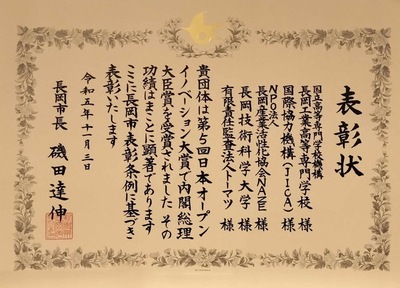 表彰状
国立高等専門学校機構
長岡工業高等専門学校 様
国際協力機構(JICA) 様
NPO法人
長岡産業活性化協会NAZE 様
長岡技術科学大学 様
有限責任監査法人トーマツ 様
貴団体は第5回日本オープン
イノベーション大賞で内閣総理
大臣賞を受賞されました その
功績はまことに顕著であります
ここに長岡市表彰条例に基づき
表彰いたします
令和五年十一月三日
長岡市長 磯田達伸